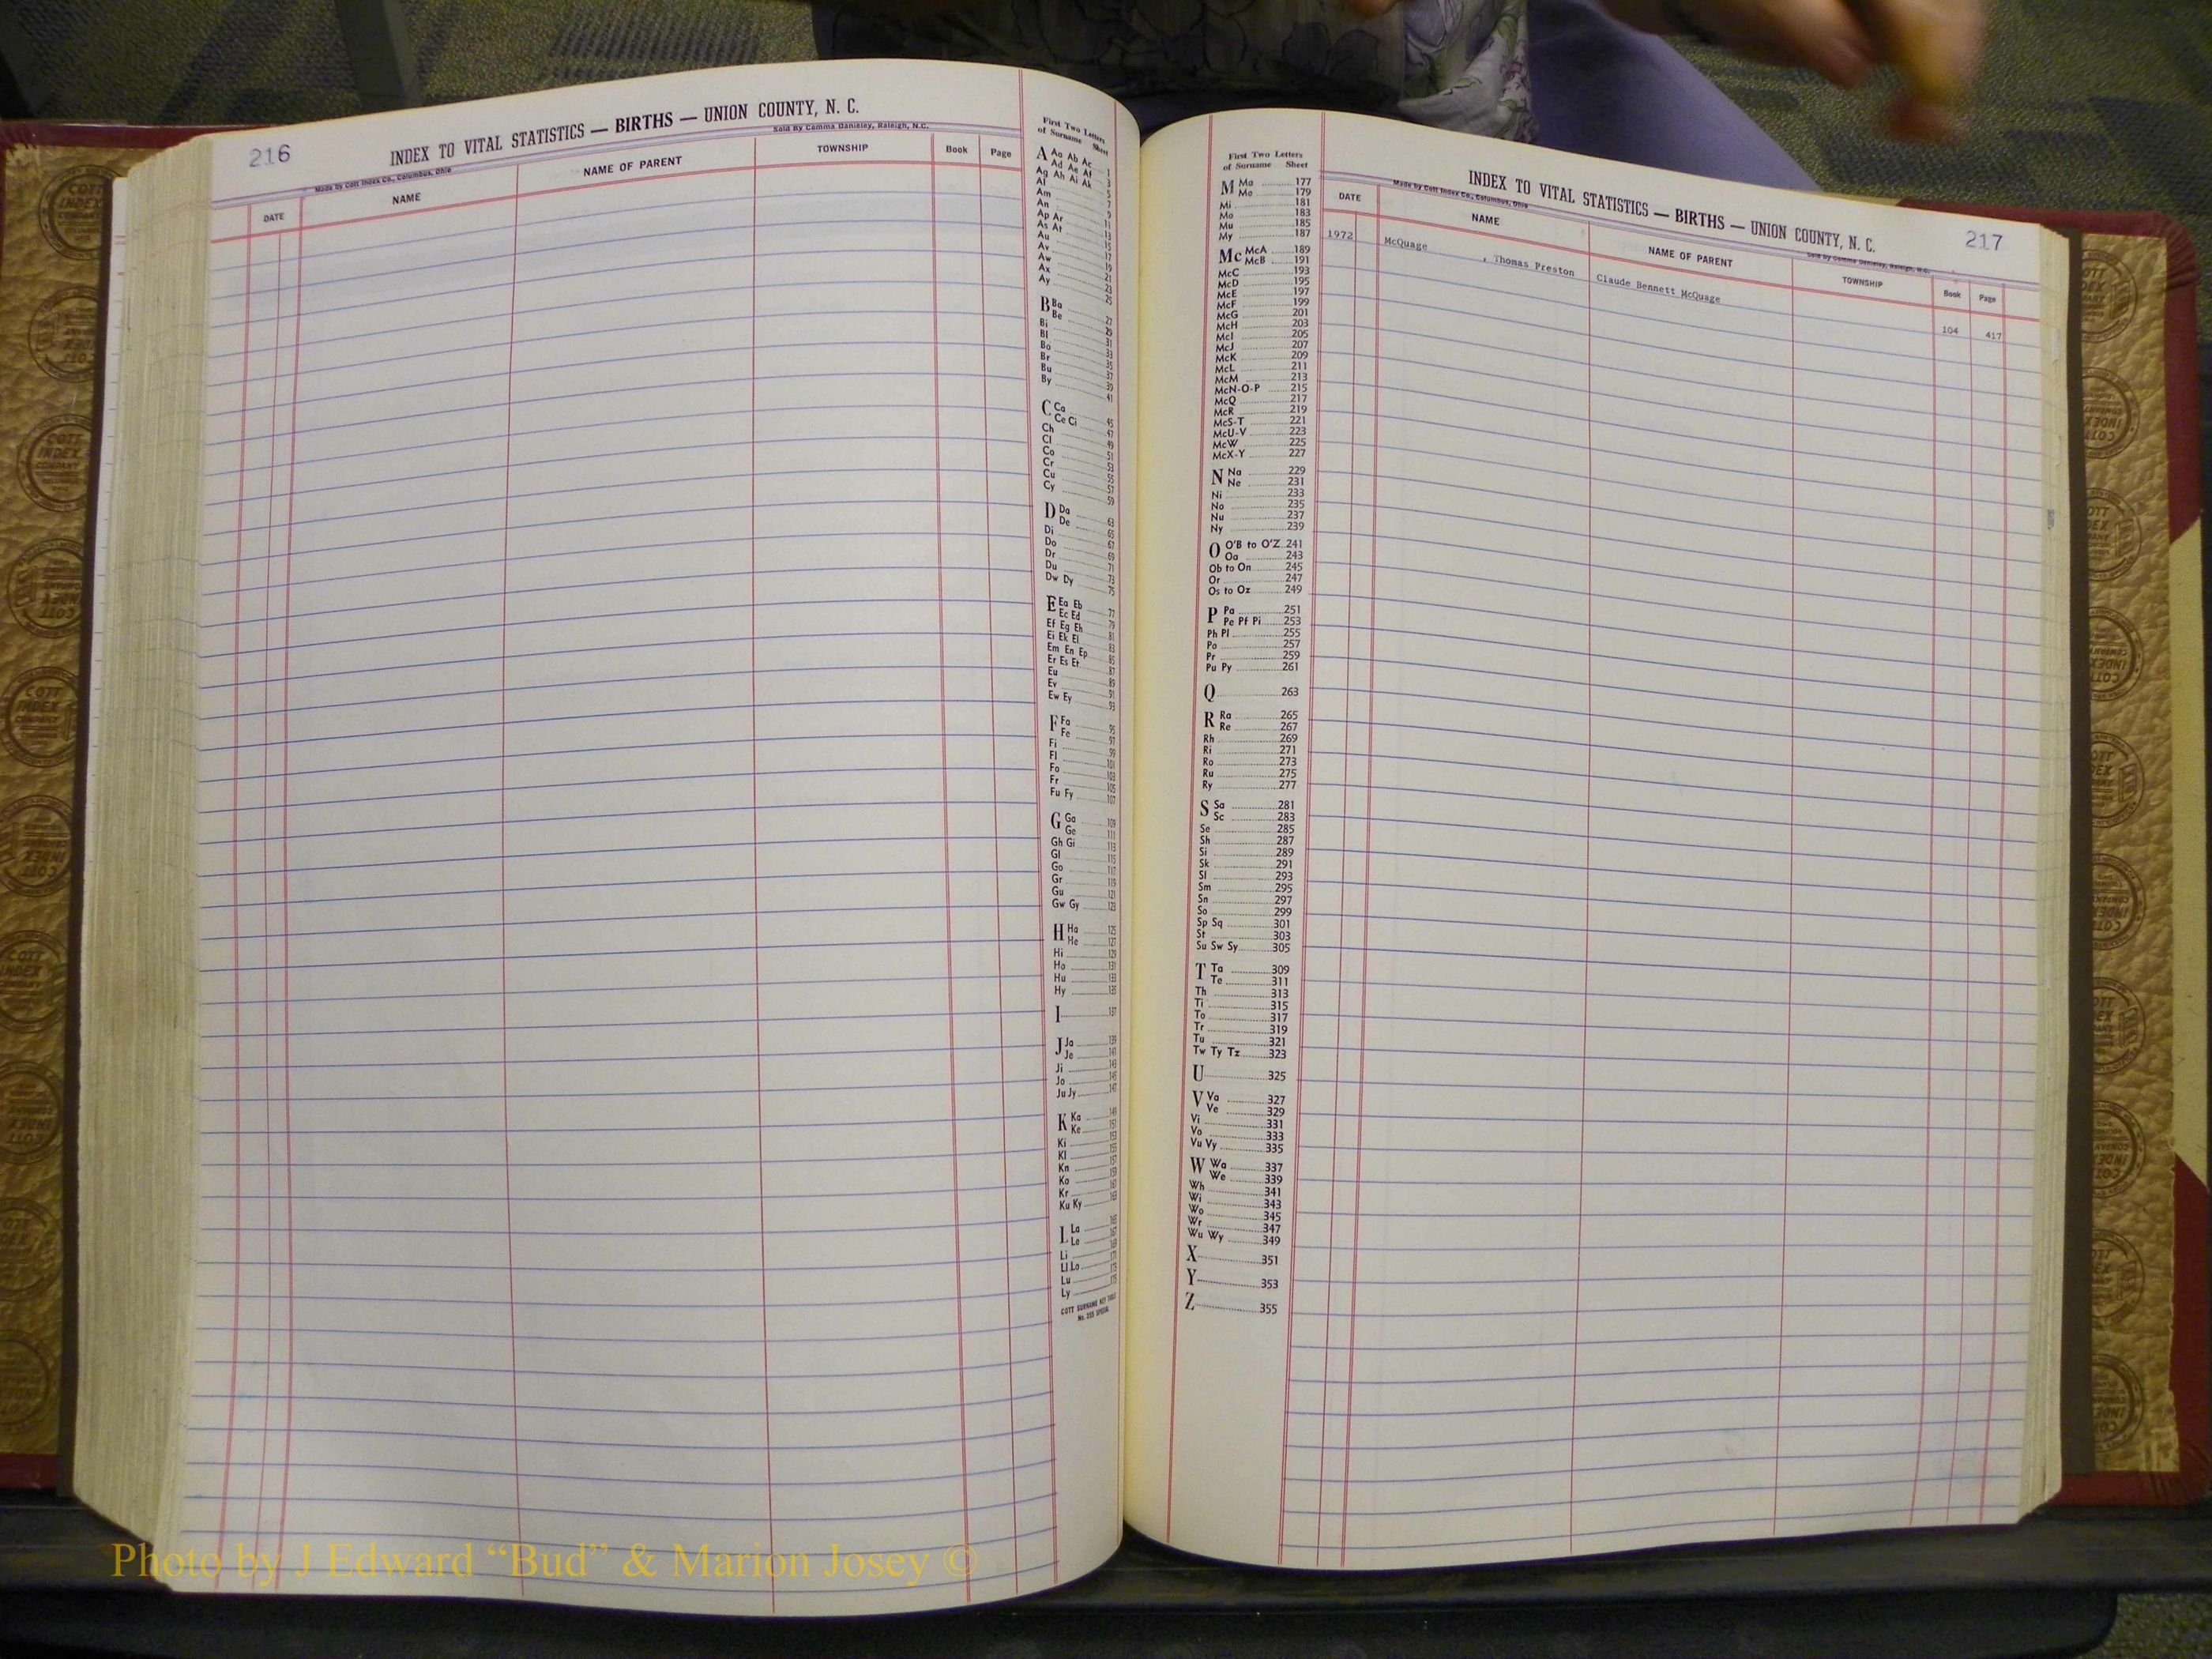 216
INDEX TO VITAL STATISTICS — BIRTHS — UNION COUNTY, N. C.
Made by Cott Index Co., Columbus, Ohio
Sold By Comma Danieley, Raleigh, N.C.
DATE NAME NAME OF PARENT TOWNSHIP Book Page
First Two Letters
of Surname Sheet
A Aa Ab Ac 1
Ad Ae Af 3
Ag Ah Ai Ak 5
Al 7
Am 9
An 11
Ap Ar 13
As At 15
Au 17
Av 19
Aw 21
Ax 23
Ay 25
B Ba 27
Be 29
Bi 31
Bl 33
Bo 35
Br 37
Bu 39
By 41
C Ca 45
Ce Ci 47
Ch 49
Cl 51
Co 53
Cr 55
Cu 57
Cy 59
D Da 63
De 65
Di 67
Do 69
Dr 71
Du 73
Dw Dy 75
E Ea Eb 77
Ec Ed 79
Ef Eg Eh 81
Ei Ek El 83
Em En Ep 85
Er Es Et 87
Eu 89
Ev 91
Ew Ey 93
F Fa 95
Fe 97
Fi 99
Fl 101
Fo 103
Fr 105
Fu Fy 107
G Ga 109
Ge 111
Gh Gi 113
Gl 115
Go 117
Gr 119
Gu 121
Gw Gy 123
H Ha 125
He 127
Hi 129
Ho 131
Hu 133
Hy 135
I 137
J Ja 139
Je 141
Ji 143
Jo 145
Ju Jy 147
K Ka 149
Ke 151
Ki 153
Kl 155
Kn 157
Ko 159
Kr 161
Ku Ky 163
L La 165
Le 167
Li 169
Ll Lo 171
Lu 173
Ly 175
COTT SURNAME KEY TABLE
No. 255 SPECIAL
First Two Letters
of Surname Sheet
M Ma 177
Me 179
Mi 181
Mo 183
Mu 185
My 187
Mc McA 189
McB 191
McC 193
McD 195
McE 197
McF 199
McG 201
McH 203
McI 205
McJ 207
McK 209
McL 211
McM 213
McN-O-P 215
McQ 217
McR 219
McS-T 221
McU-V 223
McW 225
McX-Y 227
N Na 229
Ne 231
Ni 233
No 235
Nu 237
Ny 239
O O'B to O'Z 241
Oa 243
Ob to On 245
Or 247
Os to Oz 249
P Pa 251
Pe Pf Pi 253
Ph Pl 255
Po 257
Pr 259
Pu Py 261
Q 263
R Ra 265
Re 267
Rh 269
Ri 271
Ro 273
Ru 275
Ry 277
S Sa 281
Sc 283
Se 285
Sh 287
Si 289
Sk 291
Sl 293
Sm 295
Sn 297
So 299
Sp Sq 301
St 303
Su Sw Sy 305
T Ta 309
Te 311
Th 313
Ti 315
To 317
Tr 319
Tu 321
Tw Ty Tz 323
U 325
V Va 327
Ve 329
Vi 331
Vo 333
Vu Vy 335
W Wa 337
We 339
Wh 341
Wi 343
Wo 345
Wr 347
Wu Wy 349
X 351
Y 353
Z 355
INDEX TO VITAL STATISTICS — BIRTHS — UNION COUNTY, N. C.
217
Made by Cott Index Co., Columbus, Ohio
Sold By Comma Danieley, Raleigh, N.C.
DATE NAME NAME OF PARENT TOWNSHIP Book Page
1972 McQuage , Thomas Preston Claude Bennett McQuage 104 417
COTT
INDEX
COMPANY
Photo by J Edward “Bud” & Marion Josey ©